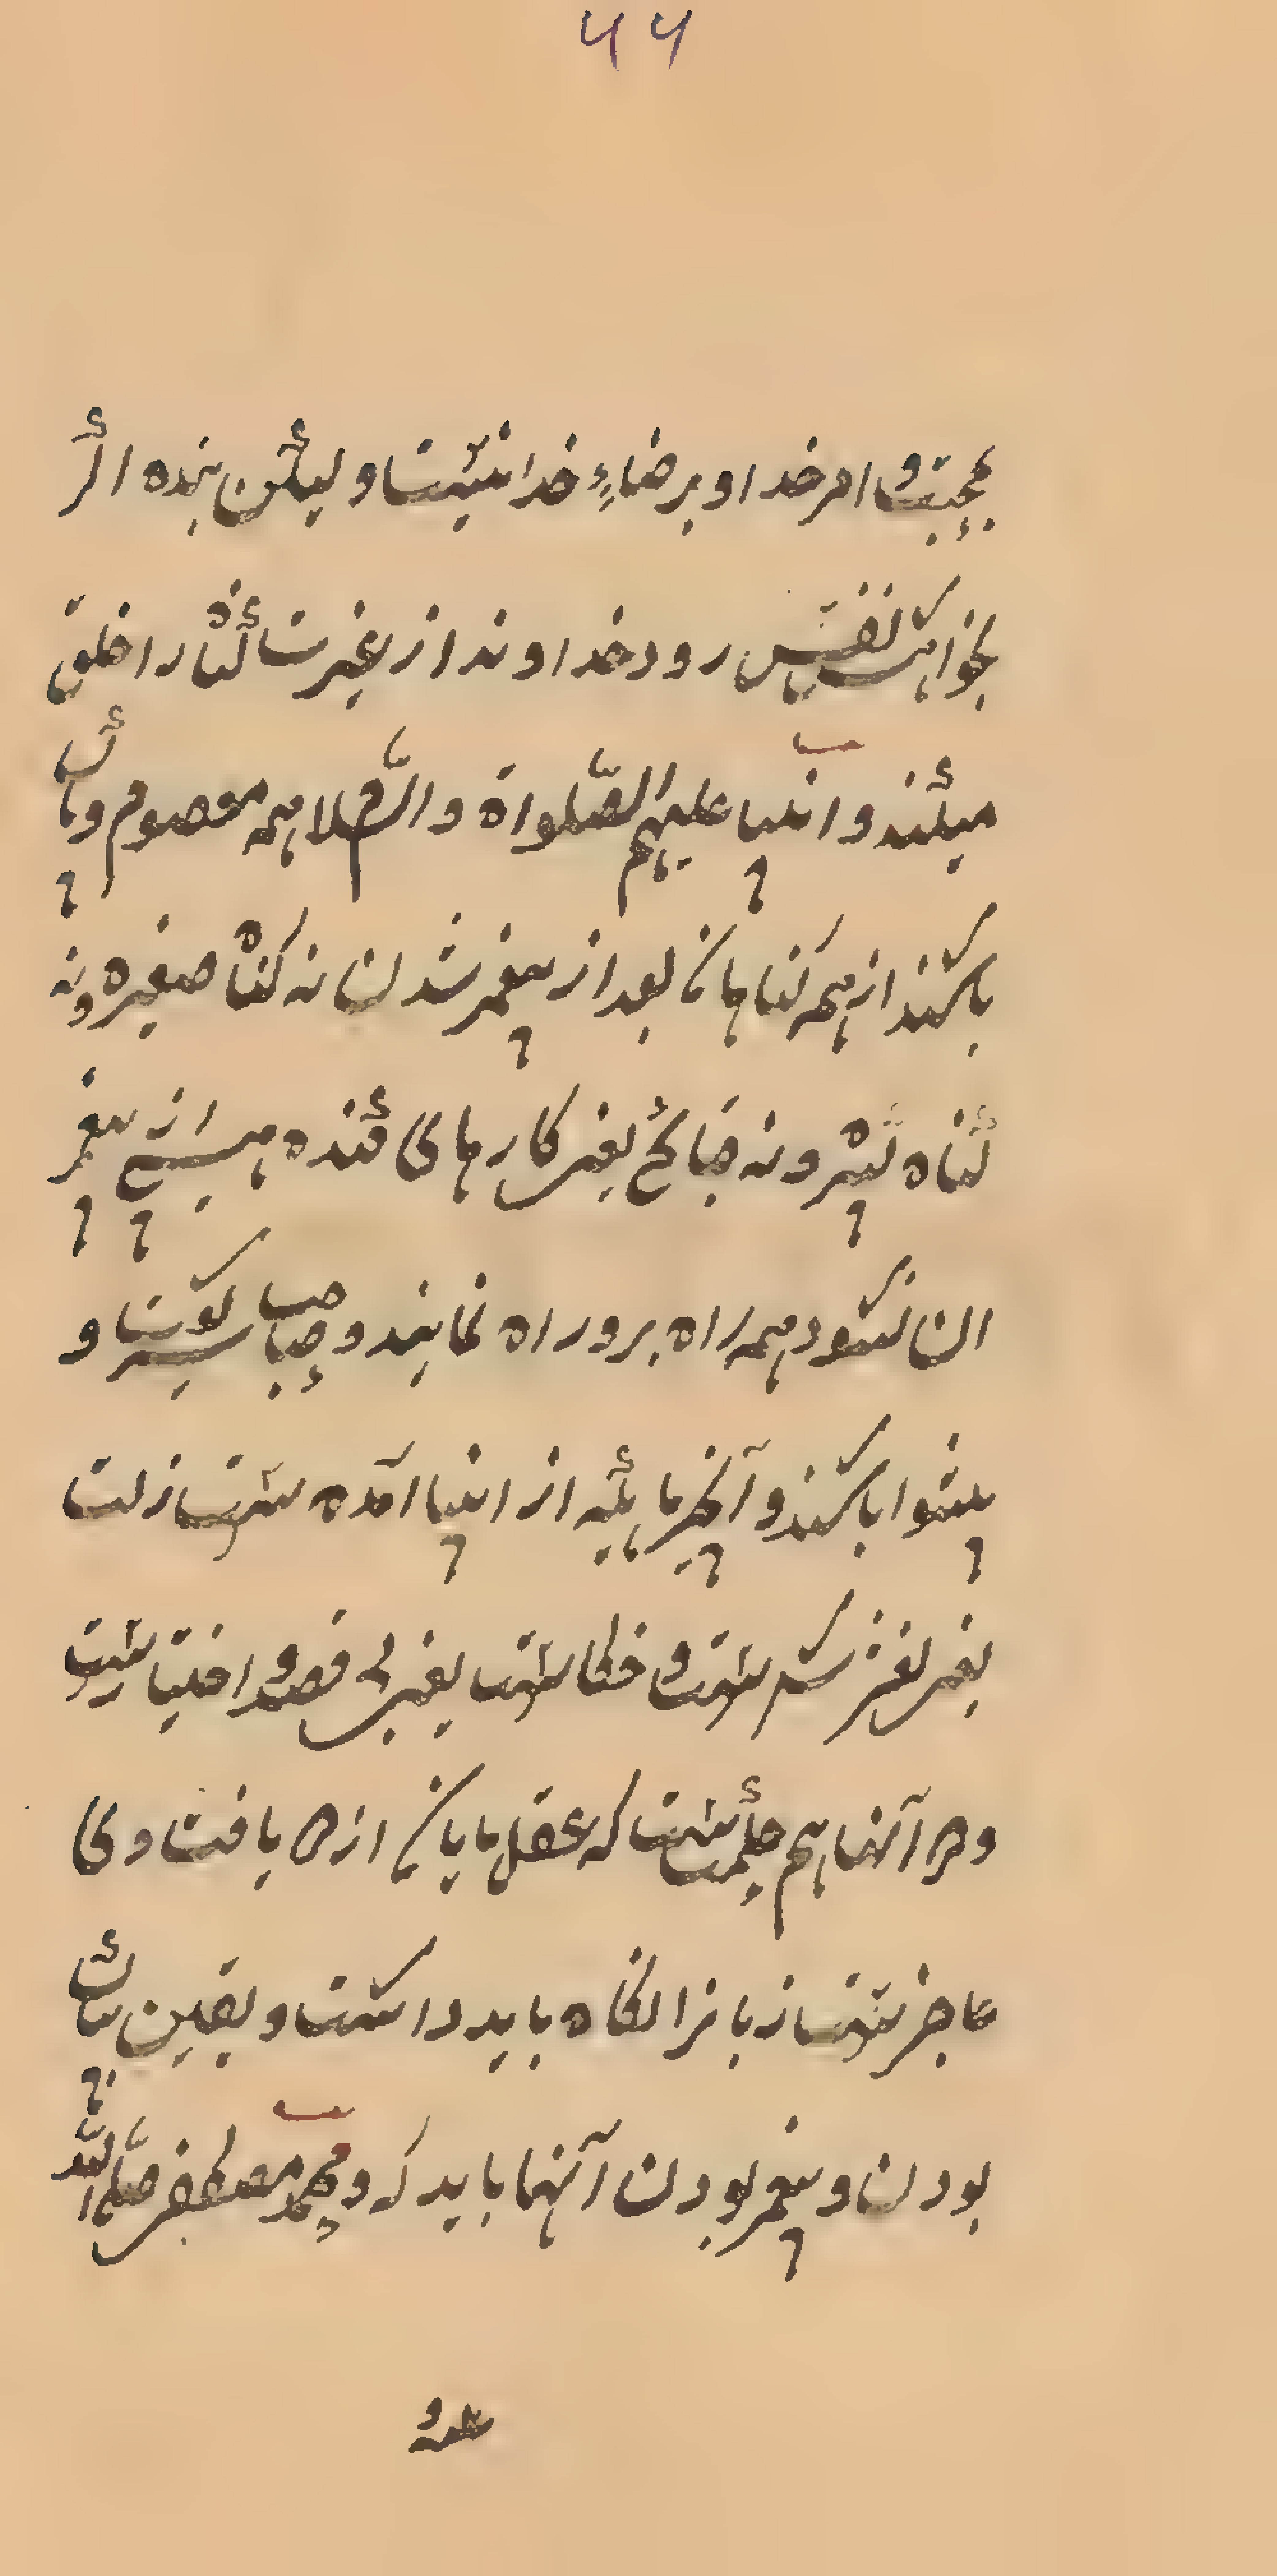 ۴۴
بمحبت و امر خدا و برضاءِ خدا نیست و لیکن بنده اگر
بخواهش نفس رود خداوند از غیرت گناه را خلق
میکند و انبیا علیهم الصّلواة والسّلام همه معصوم و پاک
باشند از همه گناهان بعد از پیغمبر شدن نه گناه صغیره و نه
گناه کبیره و نه قبائح یعنی کارهای گنده هیچ از پیغمبر
ان نشود همه راه برو راه نمایند و صاحب شریعت و
پیشوا باشند و آنچه مایکه از انبیا آمده است زلت
یعنی لغزش است و خطا است یعنی بی قصد و اختیار است
و در آنها هم حکمت است که عقل مایان از در یافت وی
عاجز است زبانرا نگاه باید داشت و یقین بپاک
بودن و پیغمبر بودن آنها باید که و محمد مصطفی صلی الله